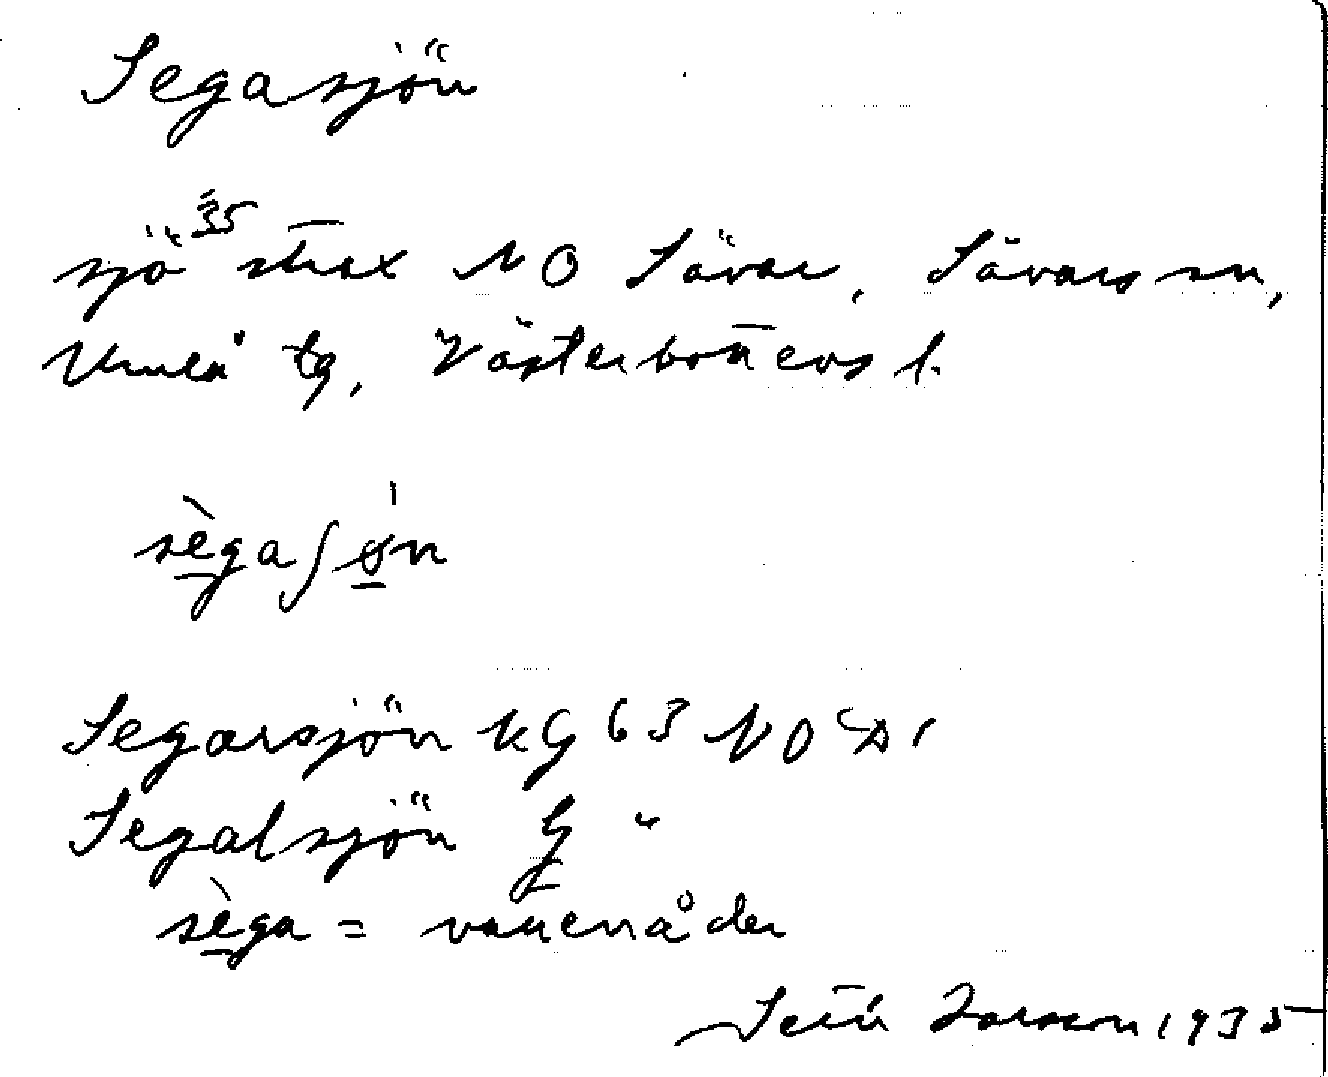 Segasjön
sjö 35 strax NO Sävar, Sävars sn,
Umeå tg, Västerbottens l.
sègaʃøn
Segarsjön KG 63 NO
Segalsjön G "
sèga = vattenåder
Larsson 1935